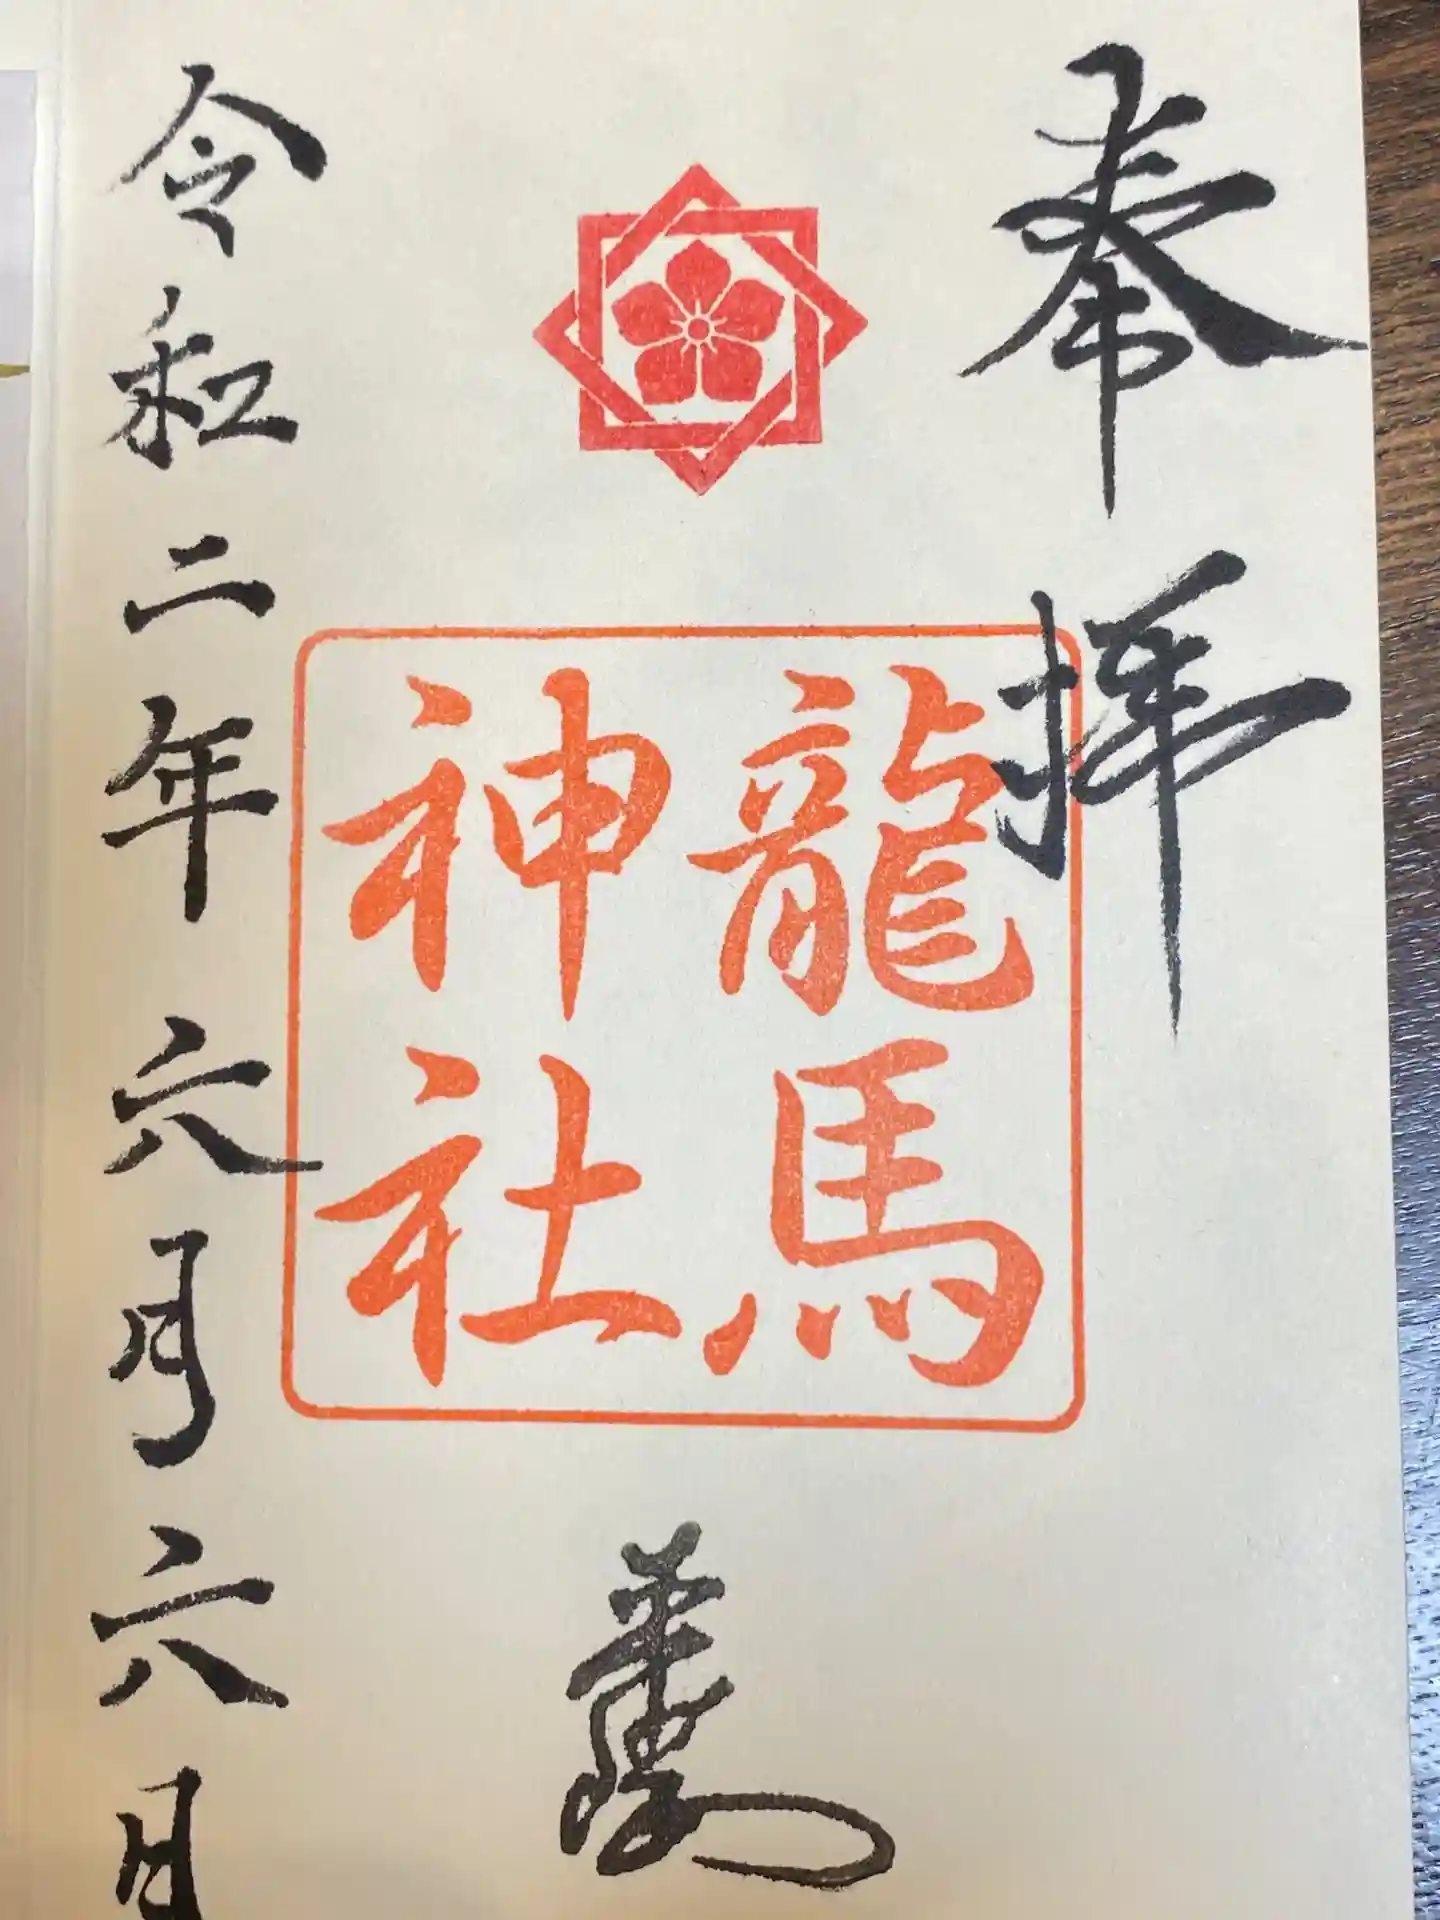 奉拝
龍馬
神社
令和二年六月六日